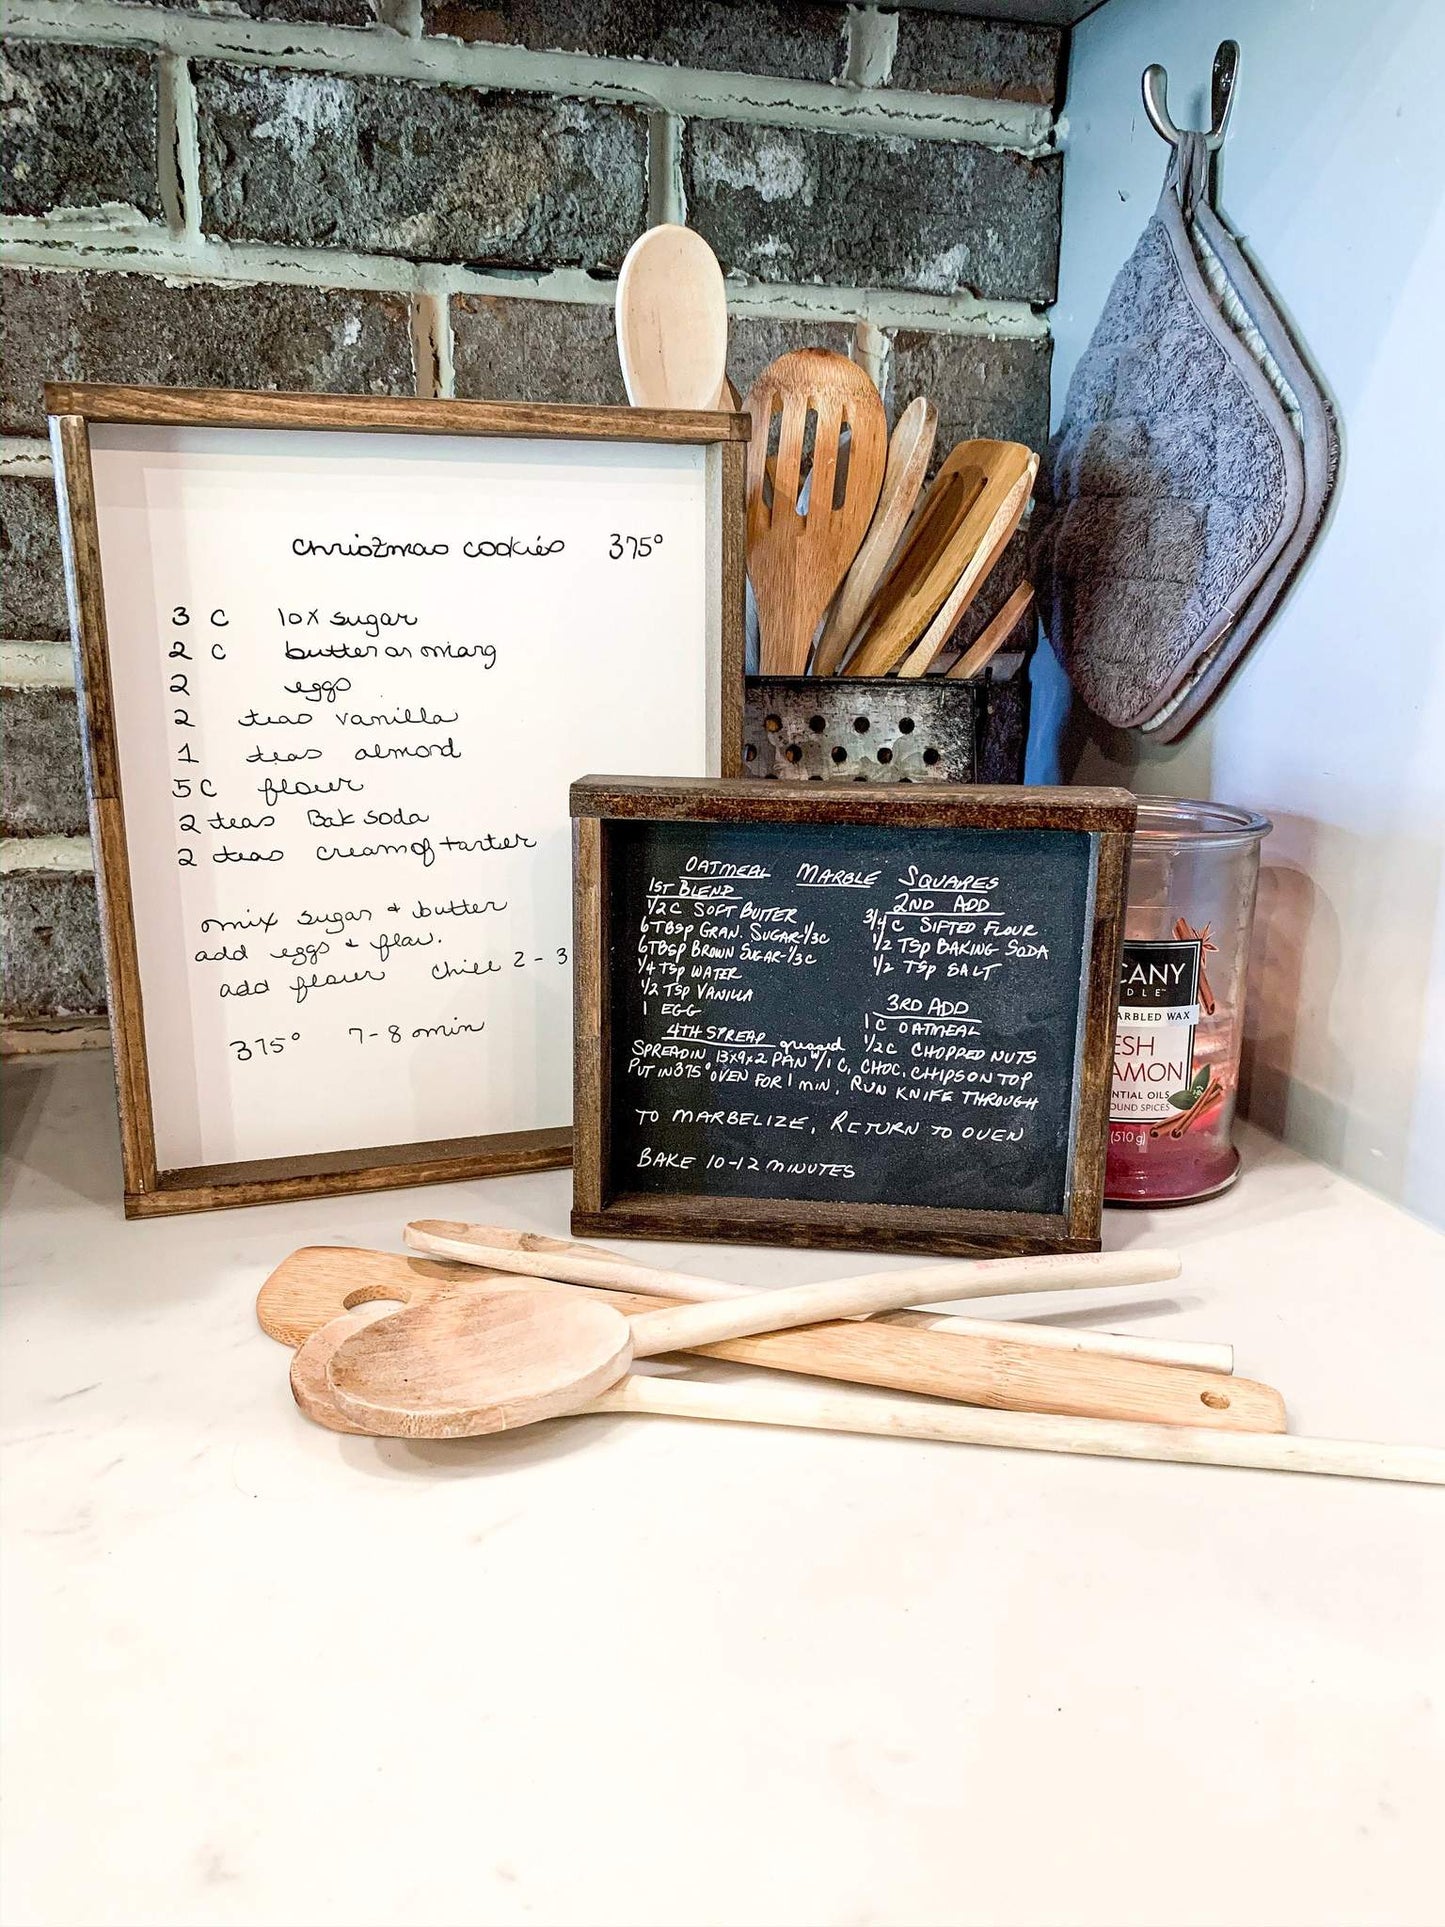 christmas cookies 375°
3 C 10x sugar
2 C butter or marg
2 eggs
2 teas vanilla
1 teas almond
5 C flour
2 teas Bak soda
2 teas cream of tarter
mix sugar + butter
add eggs + flav.
add flour chill 2-3
375° 7-8 min
OATMEAL MARBLE SQUARES
1ST BLEND
1/2 C SOFT BUTTER
6 TBSP GRAN. SUGAR-1/3C
6 TBSP BROWN SUGAR-1/3C
1/4 TSP WATER
1/2 TSP VANILLA
1 EGG
2ND ADD
3/4 C SIFTED FLOUR
1/2 TSP BAKING SODA
1/2 TSP SALT
3RD ADD
1 C OATMEAL
1/2 C CHOPPED NUTS
4TH SPREAD
greased
SPREAD IN 13x9x2 PAN W/1 C, CHOC. CHIPS ON TOP
PUT IN 375° OVEN FOR 1 MIN, RUN KNIFE THROUGH
TO MARBELIZE, RETURN TO OVEN
BAKE 10-12 MINUTES
CANY
DLE™
ARBLED WAX
ESH
AMON
NTIAL OILS
OUND SPICES
(510 g)